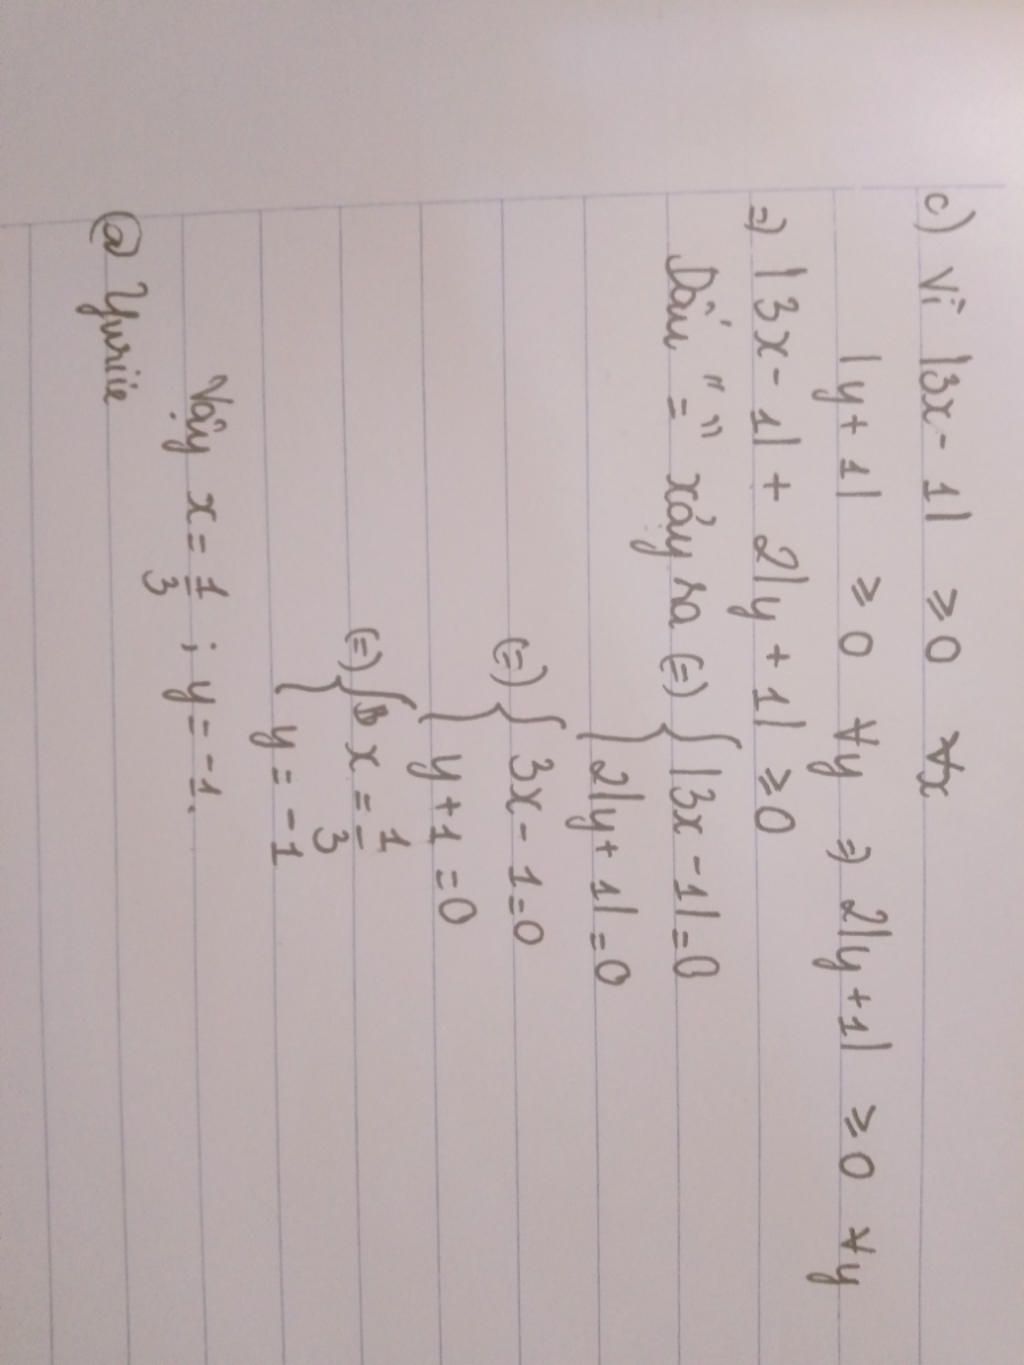 c) Vì |3x - 1| ≥ 0 ∀x
|y + 1| ≥ 0 ∀y ⇒ 2|y + 1| ≥ 0 ∀y
⇒ |3x - 1| + 2|y + 1| ≥ 0
Dấu "=" xảy ra (=) { |3x - 1| = 0
2|y + 1| = 0
(=) { 3x - 1 = 0
y + 1 = 0
(=) { x = 1/3
y = -1
Vậy x = 1/3 ; y = -1.
@ Yuriie